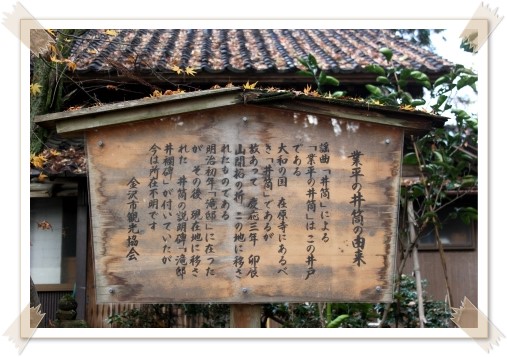 業平の井筒の由来
謡曲「井筒」による
「業平の井筒」はこの井戸
である
大和の国 在原寺にあるべ
き「井筒」であるが
故あって 慶応三年 卯辰
山開拓の折 この地に移さ
れたものである
明治初年「滝邸」に在った
が その後 現在地に移さ
れた 井筒の説明碑「滝邸
井欄碑」が付いていたが
今は所在不明です
金沢市観光協会